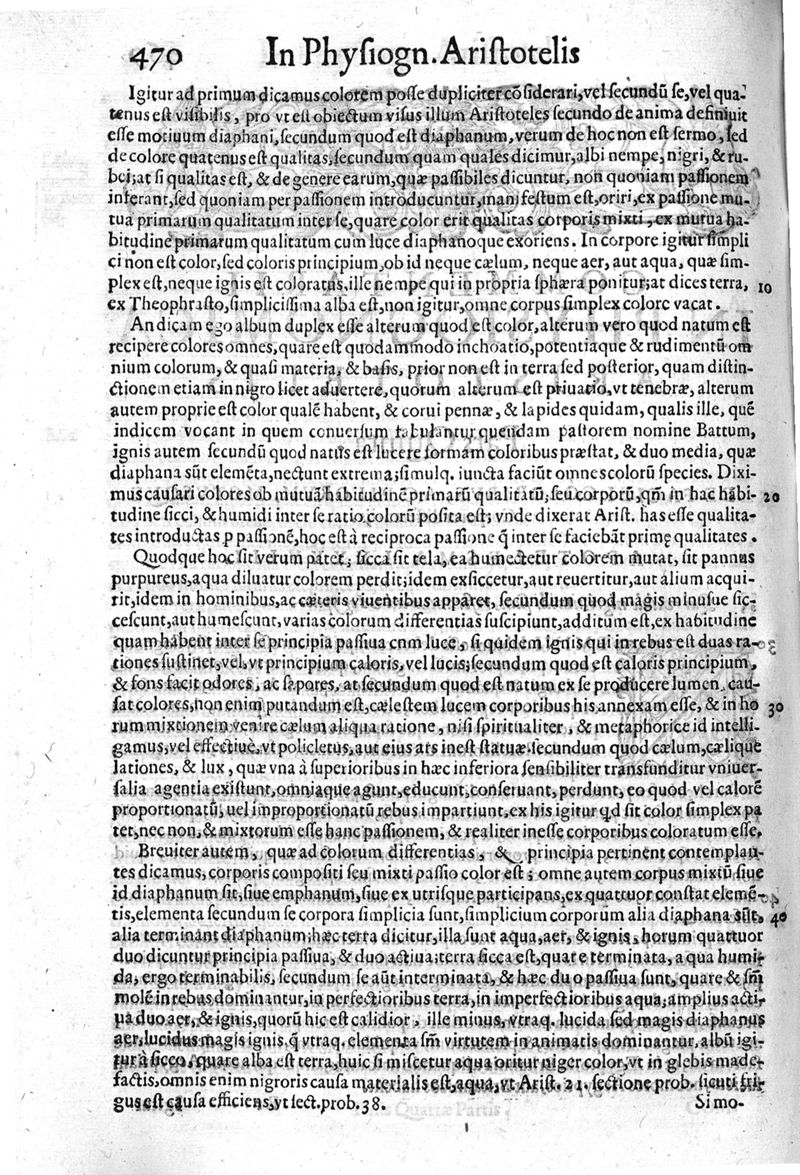 470 In Physiogn. Aristotelis
Igitur ad primum dicamus colorem posse dupliciter cōsiderari, vel secundū se, vel qua-
tenus est visibilis, pro vt est obiectum visus illum Aristoteles secundo de anima definiuit
esse motiuum diaphani, secundum quod est diaphanum, verum de hoc non est sermo, sed
de colore quatenus est qualitas, secundum quam quales dicimur, albi nempe, nigri, & ru-
bei; at si qualitas est, & de genere earum, quæ passibiles dicuntur, non quoniam passionem
inferant, sed quoniam per passionem introducuntur, manifestum est, oriri, ex passione mu-
tua primarum qualitatum inter se, quare color erit qualitas corporis mixti, ex mutua ha-
bitudine primarum qualitatum cum luce diaphanoque exoriens. In corpore igitur simpli
ci non est color, sed coloris principium, ob id neque cælum, neque aer, aut aqua, quæ sim-
plex est, neque ignis est coloratus, ille nempe qui in propria sphæra ponitur; at dices terra, 10
ex Theophrasto, simplicissima alba est, non igitur, omne corpus simplex colore vacat.
An dicam ego album duplex esse alterum quod est color, alterum vero quod natum est
recipere colores omnes, quare est quodammodo inchoatio, potentiaque & rudimentū om
nium colorum, & quasi materia, & basis, prior non est in terra sed posterior, quam distin-
ctionem etiam in nigro licet aduertere, quorum alterum est priuatio, vt tenebræ, alterum
autem proprie est color qualē habent, & corui pennæ, & lapides quidam, qualis ille, quē
indicem vocant in quem conuersum fabulantur quendam pastorem nomine Battum,
ignis autem secundū quod natus est lucere formam coloribus præstat, & duo media, quæ
diaphana sūt elemēta, nectunt extrema; simulq. iuncta faciūt omnes colorū species. Dixi-
mus causari colores ob mutuā habitudinē primarū qualitatū; seu corporū, qm̄ in hac habi- 20
tudine sicci, & humidi inter se ratio colorū posita est; vnde dixerat Arist. has esse qualita-
tes introductas p passionē, hoc est à reciproca passione q̄ inter se faciebāt primę qualitates.
Quodque hoc sit verum patet; sicca sit tela, ea humectetur colorem mutat, sit pannus
purpureus, aqua diluatur colorem perdit; idem exsiccetur, aut reuertitur, aut alium acqui-
rit, idem in hominibus, ac cæteris viuentibus apparet, secundum quod magis minusue sic-
cescunt, aut humescunt, varias colorum differentias suscipiunt, additum est, ex habitudine
quam habent inter se principia passiua cnm luce, si quidem ignis qui in rebus est duas ra-
tiones sustinet, vel, vt principium caloris, vel lucis; secundum quod est caloris principium,
& fons facit odores, ac sapores, at secundum quod est natum ex se producere lumen, cau-
sat colores, non enim putandum est, cælestem lucem corporibus his annexam esse, & in ho 30
rum mixtionem venire cælum aliqua ratione, nisi spiritualiter, & metaphorice id intelli-
gamus, vel effectiuè, vt policletus, aut eius ars inest statuæ. secundum quod cælum, cælique
lationes, & lux, quæ vna à superioribus in hæc inferiora sensibiliter transfunditur vniuer-
salia agentia existunt, omniaque agunt, educunt, conseruant, perdunt, eo quod vel calorē
proportionatū, uel improportionatū rebus impartiunt, ex his igitur qd sit color simplex pa
tet, nec non, & mixtorum esse hanc passionem, & realiter inesse corporibus coloratum esse.
Breuiter autem, quæ ad colorum differentias, & principia pertinent contemplan-
tes dicamus, corporis compositi seu mixti passio color est; omne autem corpus mixtū siue
id diaphanum sit, siue emphanum, siue ex utrisque participans, ex quattuor constat elemē-
tis, elementa secundum se corpora simplicia sunt, simplicium corporum alia diaphana sūt, 40
alia terminant diaphanum; hæc terra dicitur, illa sunt aqua, aer, & ignis, horum quattuor
duo dicuntur principia passiua, & duo actiua: terra sicca est, quare terminata, aqua humi-
da, ergo terminabilis, secundum se aūt interminata, & hæc duo passiua sunt, quare & sm̄
molē in rebus dominantur, in perfectioribus terra, in imperfectioribus aqua; amplius acti-
ua duo aer, & ignis, quorū hic est calidior, ille minus, vtraq. lucida sed magis diaphanus
aer, lucidus magis ignis, q̄ vtraq. elementa sm̄ virtutem in animatis dominantur, albū igi-
tur à sicco, quare alba est terra, huic si miscetur aqua oritur niger color, vt in glebis made-
factis, omnis enim nigroris causa materialis est, aqua, vt Arist. 21. sectione prob. sicuti fri-
gus est causa efficiens, vt sect. prob. 38. Si mo-